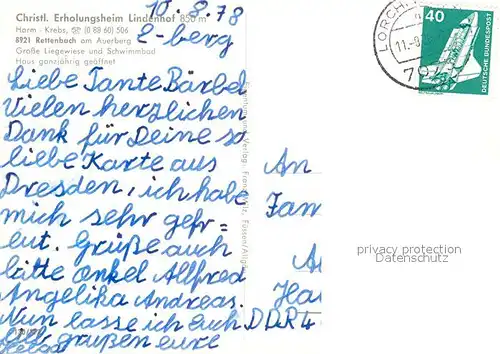 Christl. Erholungsheim Lindenhof 850 m
Harm-Krebs, ☏ (0 88 60) 506
8921 Rettenbach am Auerberg
Große Liegewiese und Schwimmbad
Haus ganzjährig geöffnet
10.8.78
E-berg
Liebe Tante Bärbel
Vielen herzlichen
Dank für Deine so
liebe Karte aus
Dresden, ich habe
mich sehr gefr=
eut. Grüße auch
bitte onkel Allfred
Angelika Andreas.
Nun lasse ich Euch
grüßen eure
Helga
An
Fam
Ha
DDR 4
LORCH
11.-8.
40
DEUTSCHE BUNDESPOST
privacy protection
Datenschutz